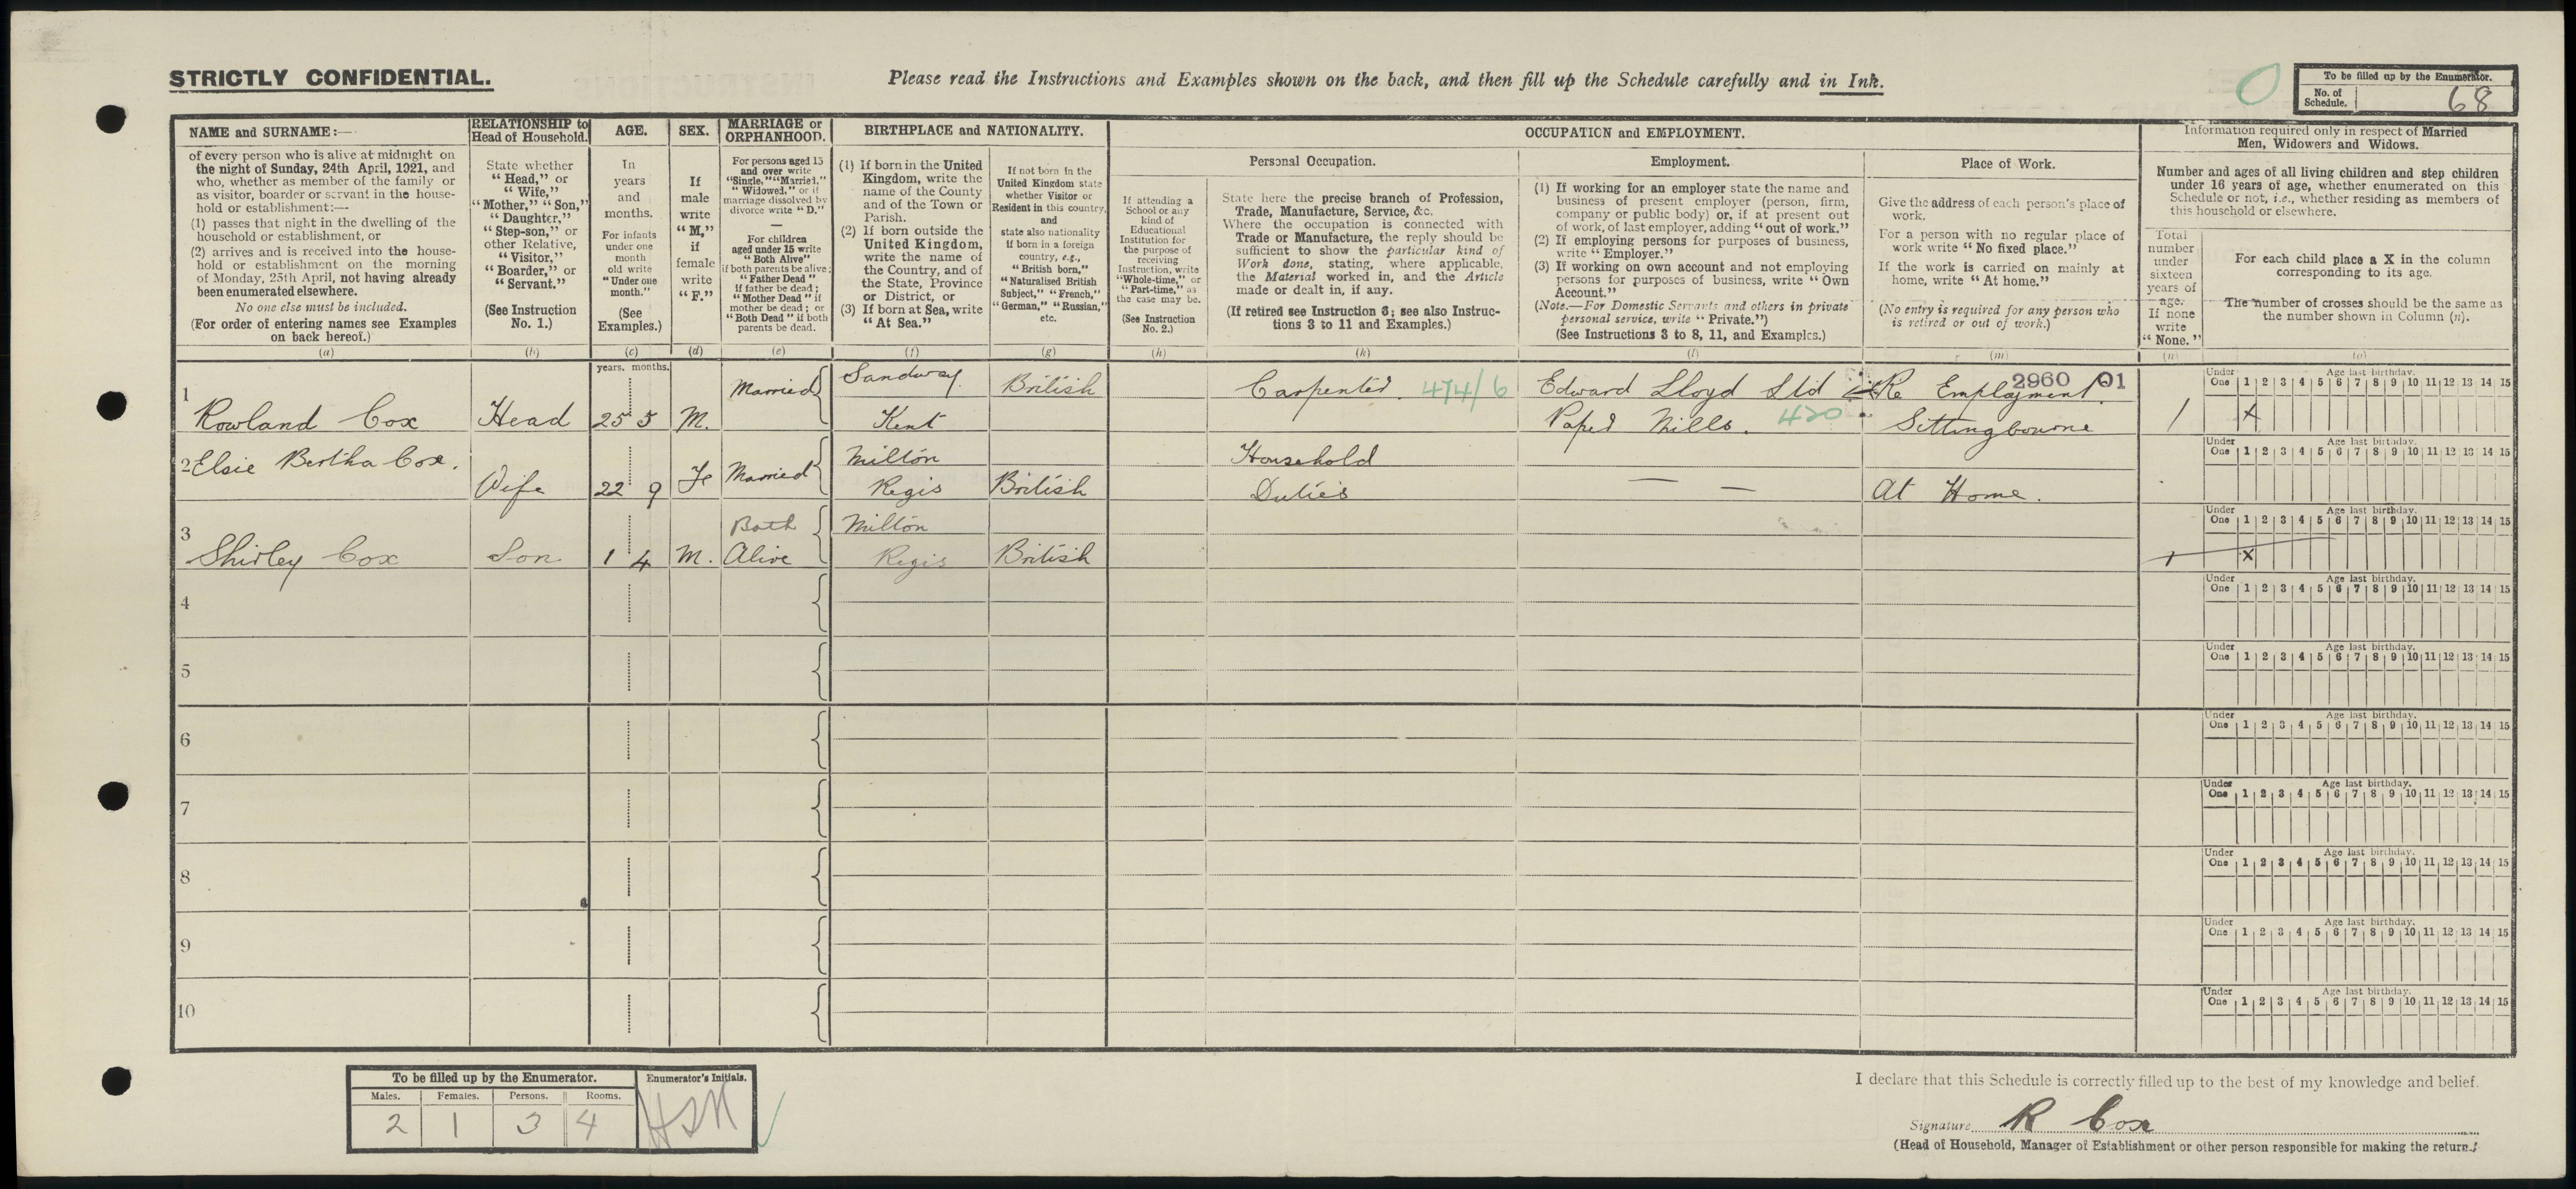 STRICTLY CONFIDENTIAL.
Please read the Instructions and Examples shown on the back, and then fill up the Schedule carefully and in Ink.
To be filled up by the Enumerator.
No. of Schedule. 68
NAME and SURNAME:—
of every person who is alive at midnight on
the night of Sunday, 24th April, 1921, and
who, whether as member of the family or
as visitor, boarder or servant in the house-
hold or establishment:—
(1) passes that night in the dwelling of the
household or establishment, or
(2) arrives and is received into the house-
hold or establishment on the morning
of Monday, 25th April, not having already
been enumerated elsewhere.
No one else must be included.
(For order of entering names see Examples
on back hereof.)
(a)
RELATIONSHIP to
Head of Household.
State whether
"Head," or
"Wife,"
"Mother," "Son,"
"Daughter,"
"Step-son," or
other Relative,
"Visitor,"
"Boarder," or
"Servant."
(See Instruction
No. 1.)
(b)
AGE.
In
years
and
months.
For infants
under one
month
old write
"Under one
month."
(See
Examples.)
(c)
SEX.
If
male
write
"M,"
if
female
write
"F."
(d)
MARRIAGE or
ORPHANHOOD.
For persons aged 15
and over write
"Single," "Married,"
"Widowed," or if
marriage dissolved by
divorce write "D."
—
For children
aged under 15 write
"Both Alive"
if both parents be alive;
"Father Dead"
if father be dead;
"Mother Dead" if
mother be dead; or
"Both Dead" if both
parents be dead.
(e)
BIRTHPLACE and NATIONALITY.
(1) If born in the United
Kingdom, write the
name of the County
and of the Town or
Parish.
(2) If born outside the
United Kingdom,
write the name of
the Country, and of
the State, Province
or District, or
(3) If born at Sea, write
"At Sea."
(f)
If not born in the
United Kingdom state
whether Visitor or
Resident in this country,
and
state also nationality
if born in a foreign
country, e.g.,
"British born,"
"Naturalised British
Subject," "French,"
"German," "Russian,"
etc.
(g)
OCCUPATION and EMPLOYMENT.
If attending a
School or any
kind of
Educational
Institution for
the purpose of
receiving
Instruction, write
"Whole-time," or
"Part-time," as
the case may be.
(See Instruction
No. 2.)
(h)
Personal Occupation.
State here the precise branch of Profession,
Trade, Manufacture, Service, &c.
Where the occupation is connected with
Trade or Manufacture, the reply should be
sufficient to show the particular kind of
Work done, stating, where applicable,
the Material worked in, and the Article
made or dealt in, if any.
(If retired see Instruction 3; see also Instruc-
tions 3 to 11 and Examples.)
(k)
Employment.
(1) If working for an employer state the name and
business of present employer (person, firm,
company or public body) or, if at present out
of work, of last employer, adding "out of work."
(2) If employing persons for purposes of business,
write "Employer."
(3) If working on own account and not employing
persons for purposes of business, write "Own
Account."
(Note.—For Domestic Servants and others in private
personal service, write "Private.")
(See Instructions 3 to 8, 11, and Examples.)
(l)
Place of Work.
Give the address of each person's place of
work.
For a person with no regular place of
work write "No fixed place."
If the work is carried on mainly at
home, write "At home."
(No entry is required for any person who
is retired or out of work.)
(m)
Information required only in respect of Married
Men, Widowers and Widows.
Number and ages of all living children and step children
under 16 years of age, whether enumerated on this
Schedule or not, i.e., whether residing as members of
this household or elsewhere.
Total
number
under
sixteen
years of
age.
If none
write
"None."
(n)
For each child place a X in the column
corresponding to its age.
The number of crosses should be the same as
the number shown in Column (n).
(o)
years. months.
1 Rowland Cox Head 25 5 M. Married Sandway. Kent British Carpenter. 474/6 Edward Lloyd Ltd Paper Mills. 420 Employment. Sittingbourne 2960 01 1 X
Under One Age last birthday. 1 2 3 4 5 6 7 8 9 10 11 12 13 14 15
2 Elsie Bertha Cox. Wife 22 9 Fe Married Milton Regis British Household Duties — — At Home.
Under One Age last birthday. 1 2 3 4 5 6 7 8 9 10 11 12 13 14 15
3 Shirley Cox Son 1 4 M. Both Alive Milton Regis British 1 X
Under One Age last birthday. 1 2 3 4 5 6 7 8 9 10 11 12 13 14 15
4
Under One Age last birthday. 1 2 3 4 5 6 7 8 9 10 11 12 13 14 15
5
Under One Age last birthday. 1 2 3 4 5 6 7 8 9 10 11 12 13 14 15
6
Under One Age last birthday. 1 2 3 4 5 6 7 8 9 10 11 12 13 14 15
7
Under One Age last birthday. 1 2 3 4 5 6 7 8 9 10 11 12 13 14 15
8
Under One Age last birthday. 1 2 3 4 5 6 7 8 9 10 11 12 13 14 15
9
Under One Age last birthday. 1 2 3 4 5 6 7 8 9 10 11 12 13 14 15
10
Under One Age last birthday. 1 2 3 4 5 6 7 8 9 10 11 12 13 14 15
To be filled up by the Enumerator.
Males. Females. Persons. Rooms.
2 1 3 4
Enumerator's Initials.
I declare that this Schedule is correctly filled up to the best of my knowledge and belief.
Signature R Cox
(Head of Household, Manager of Establishment or other person responsible for making the return.)